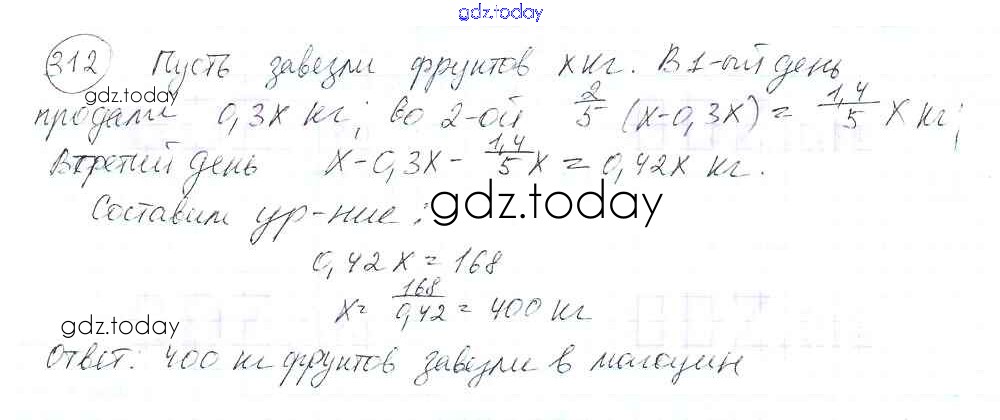 gdz.today
312 Пусть завезли фруктов x кг. В 1-ый день
gdz.today
продали 0,3x кг; во 2-ой 2/5 (x-0,3x) = 1,4/5 x кг;
В третий день x-0,3x- 1,4/5 x = 0,42x кг.
Составим ур-ние: gdz.today
0,42x = 168
x= 168/0,42 = 400 кг
gdz.today
Ответ: 400 кг фруктов завезли в магазин